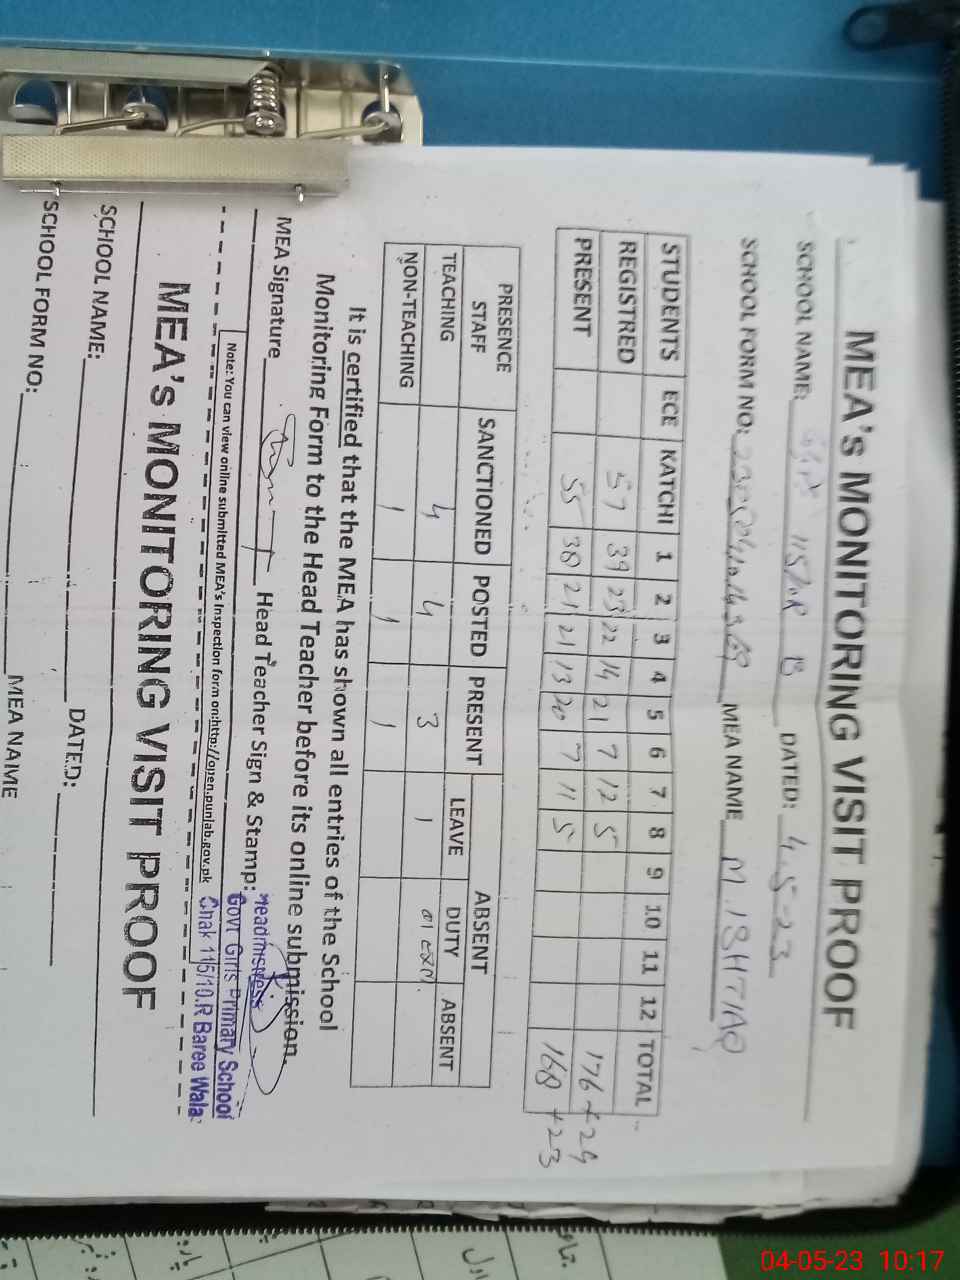 MEA's MONITORING VISIT PROOF
SCHOOL NAME: 115/10R B DATED: 4-5-23
SCHOOL FORM NO: MEA NAME M. ISHTIAQ
STUDENTS ECE KATCHI 1 2 3 4 5 6 7 8 9 10 11 12 TOTAL
REGISTRED 57 39 23 22 14 21 7 12 5 176 + 24
PRESENT 55 38 21 21 13 20 7 11 5 168 + 23
PRESENCE ABSENT
STAFF SANCTIONED POSTED PRESENT LEAVE DUTY ABSENT
TEACHING 4 4 3 1
NON-TEACHING 1 1 1
It is certified that the MEA has shown all entries of the School
Monitoring Form to the Head Teacher before its online submission.
MEA Signature Head Teacher Sign & Stamp:
Headmistress
Govt Girls Primary School
Chak 115/10.R Baree Wala
Note: You can view online submitted MEA's Inspection form on:http://open.punjab.gov.pk
MEA's MONITORING VISIT PROOF
SCHOOL NAME: DATED:
SCHOOL FORM NO: MEA NAME
04-05-23 10:17